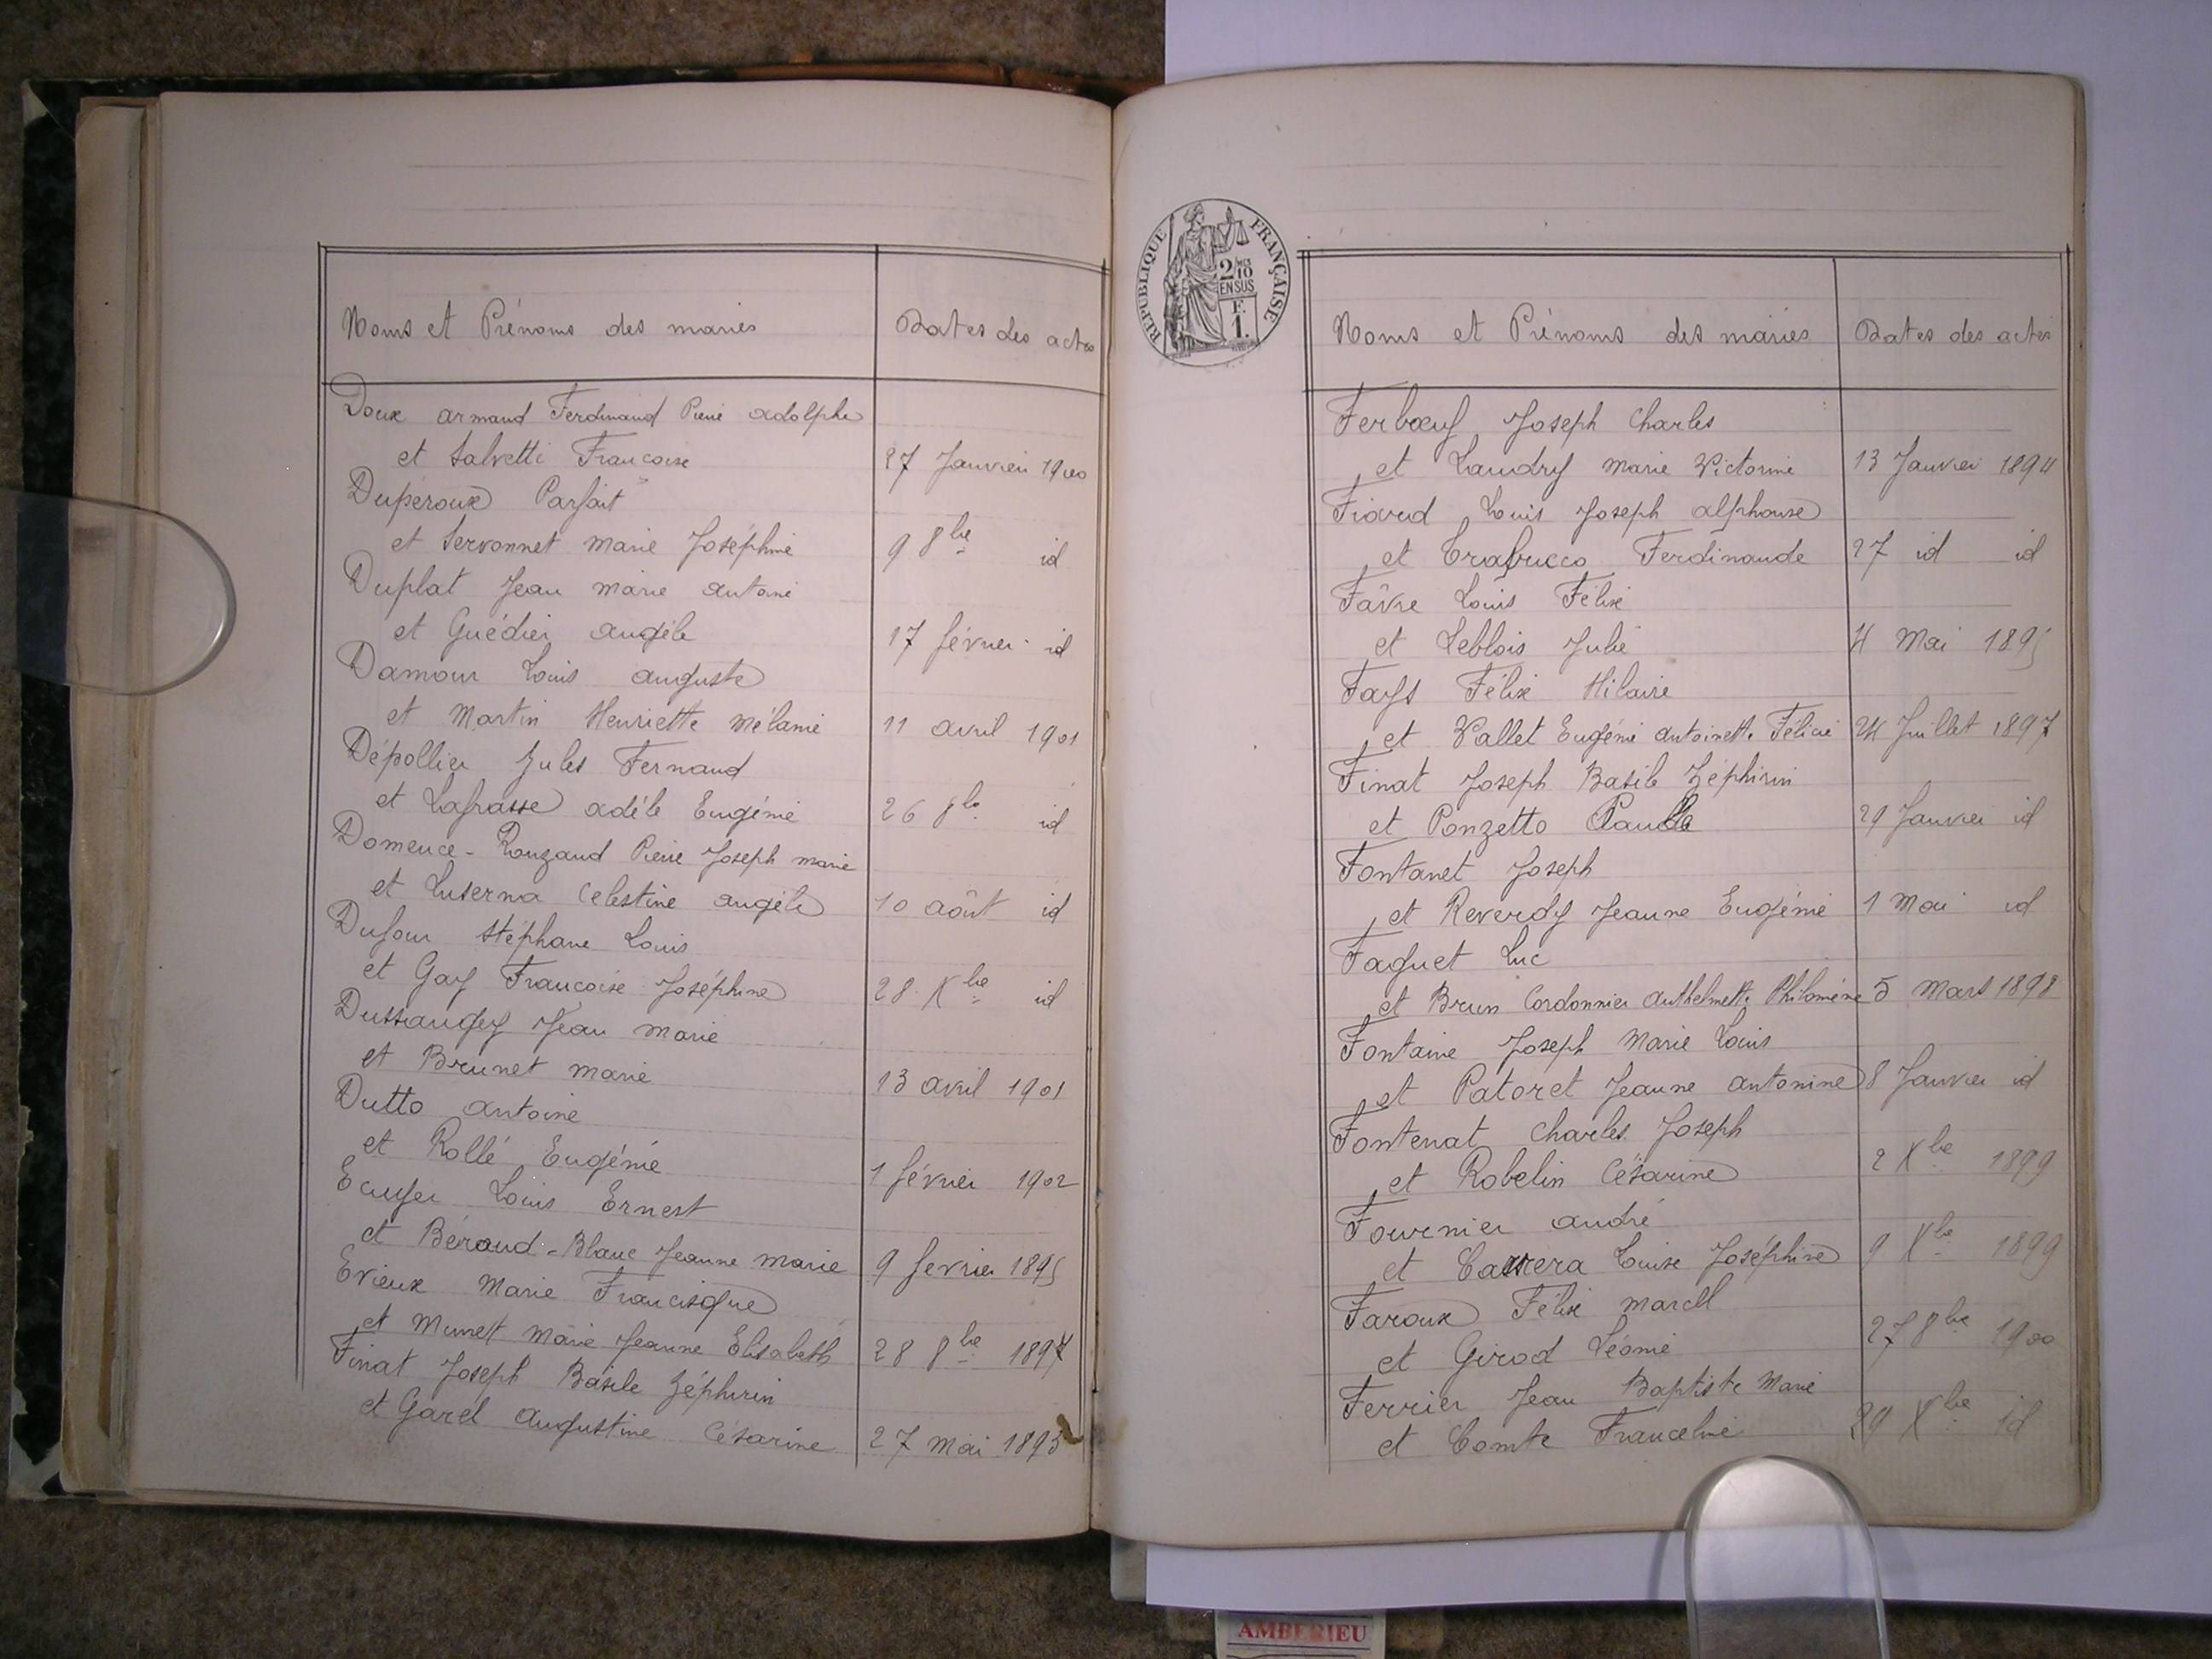 Noms et Prénoms des mariés Dates des actes
Doux armand Ferdinand Pierre adolphe
et Salvetti Francoise 27 Janvier 1900
Duperoux Parfait
et Servonnet marie Joséphine 9 8bre id
Duplat Jean marie antoine
et Guédier angèle 17 février id
Damour Louis auguste
et Martin Henriette mélanie 11 avril 1901
Dépollier Jules Fernand
et Lafrasse adèle Eugénie 26 8bre id
Domence - Rouzaud Pierre Joseph marie
et Luserna Celestine angèle 10 août id
Dufour Stéphane Louis
et Gay Francoise Joséphine 28 Xbre id
Dussaugey Jean marie
et Brunet marie 13 avril 1901
Dutto antoine
et Rollé Eugénie 1 février 1902
Ecuyer Louis Ernest
et Béraud - Blanc Jeanne marie 9 fevrier 1895
Evieux Marie Francisque
et Munett Marie Jeanne Elisabeth 28 8bre 1897
Finat Joseph Basile Zéphirin
et Garel augustine Césarine 27 mai 1893
REPUBLIQUE FRANÇAISE
2/10 MES
EN SUS
F.
1.
Noms et Prénoms des mariés Dates des actes
Ferbœuf Joseph Charles
et Landry marie Victorine 13 Janvier 1894
Fiard Louis Joseph alphonse
et Trabucco Ferdinande 27 id id
Fâvre Louis Félix
et Leblois Julie 4 Mai 1895
Fays Félix Hilaire
et Vallet Eugénie antoinette Félicie 24 Juillet 1897
Finat Joseph Basile Zéphirin
et Ponzetto Claudia 29 Janvier id
Fontanet Joseph
et Reverdy Jeanne Eugénie 1 Mai id
Faguet Luc
et Brun Cordonnier anthelmette Philomène 5 Mars 1898
Fontaine Joseph Marie Louis
et Patoret Jeanne antonine 8 Janvier id
Fontenat Charles Joseph
et Robelin Césarine 2 Xbre 1899
Fournier andré
et Carrera Louise Joséphine 9 Xbre 1899
Faroux Félix marcel
et Girod Léonie 27 8bre 1900
Ferrier Jean Baptiste Marie
et Comte Franceline 29 Xbre id
AMBERIEU